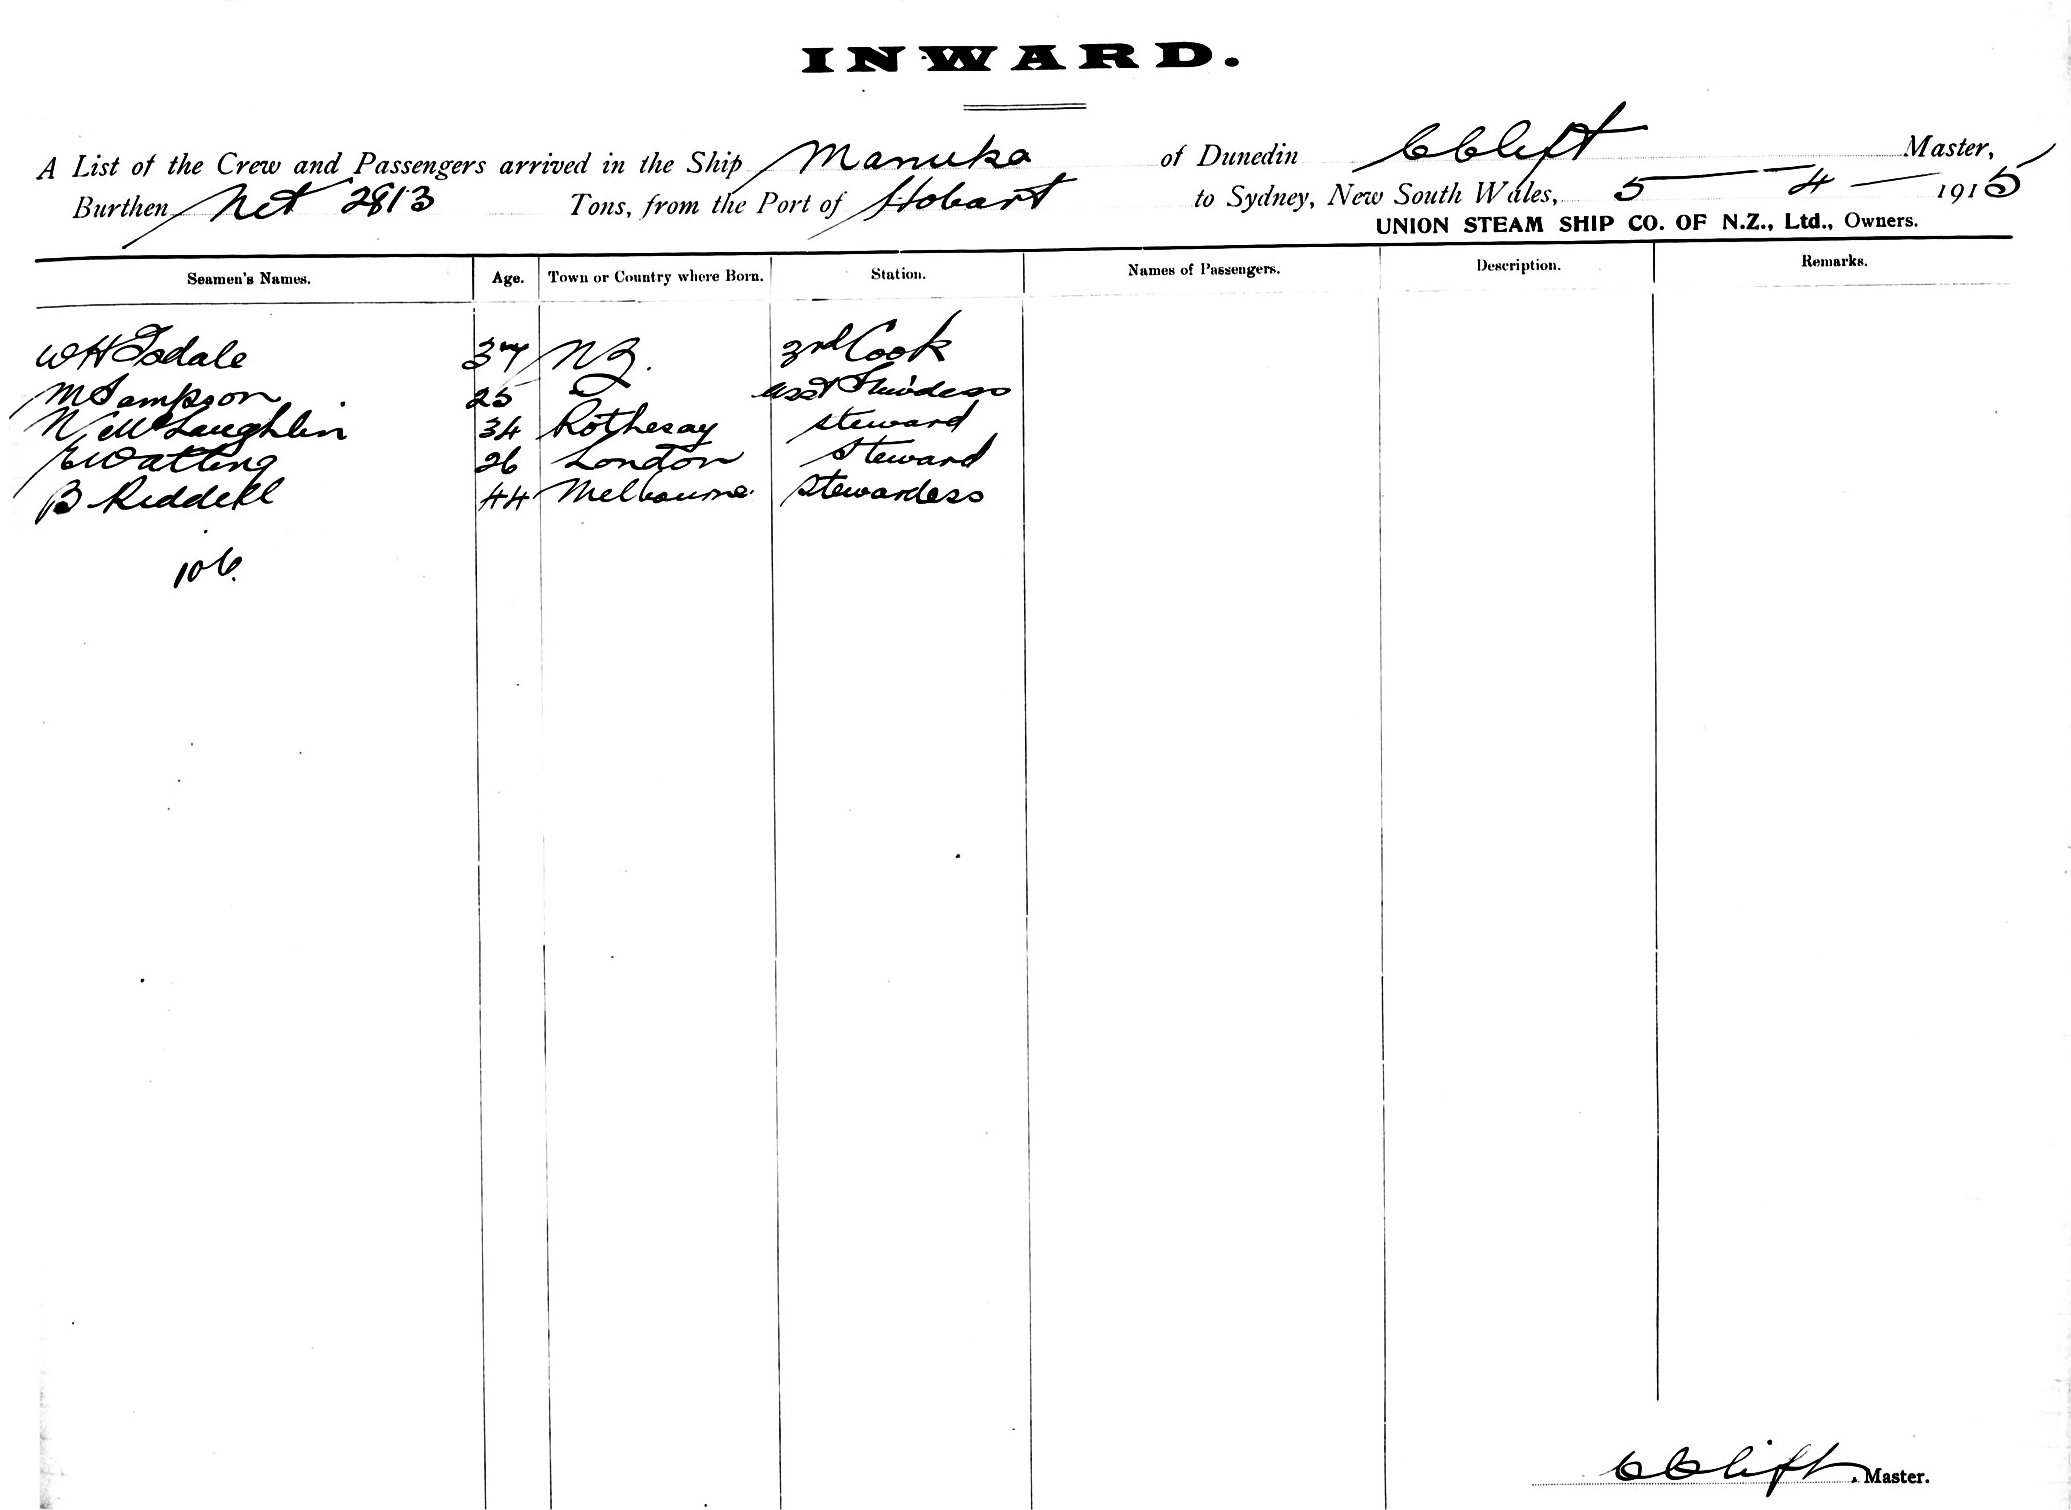 INWARD.
A List of the Crew and Passengers arrived in the Ship Manuka of Dunedin C Clift Master,
Burthen Net 2813 Tons, from the Port of Hobart to Sydney, New South Wales, 5 — 4 — 1915
UNION STEAM SHIP CO. OF N.Z., Ltd., Owners.
Seamen's Names. Age. Town or Country where Born. Station. Names of Passengers. Description. Remarks.
W H Isdale 37 NZ. 3rd Cook
M Sampson 25 Asst Stwdess
N McLaughlin 34 Rothesay Steward
E Watling 26 London Steward
B Riddell 44 Melbourne. Stewardess
106.
C Clift. Master.